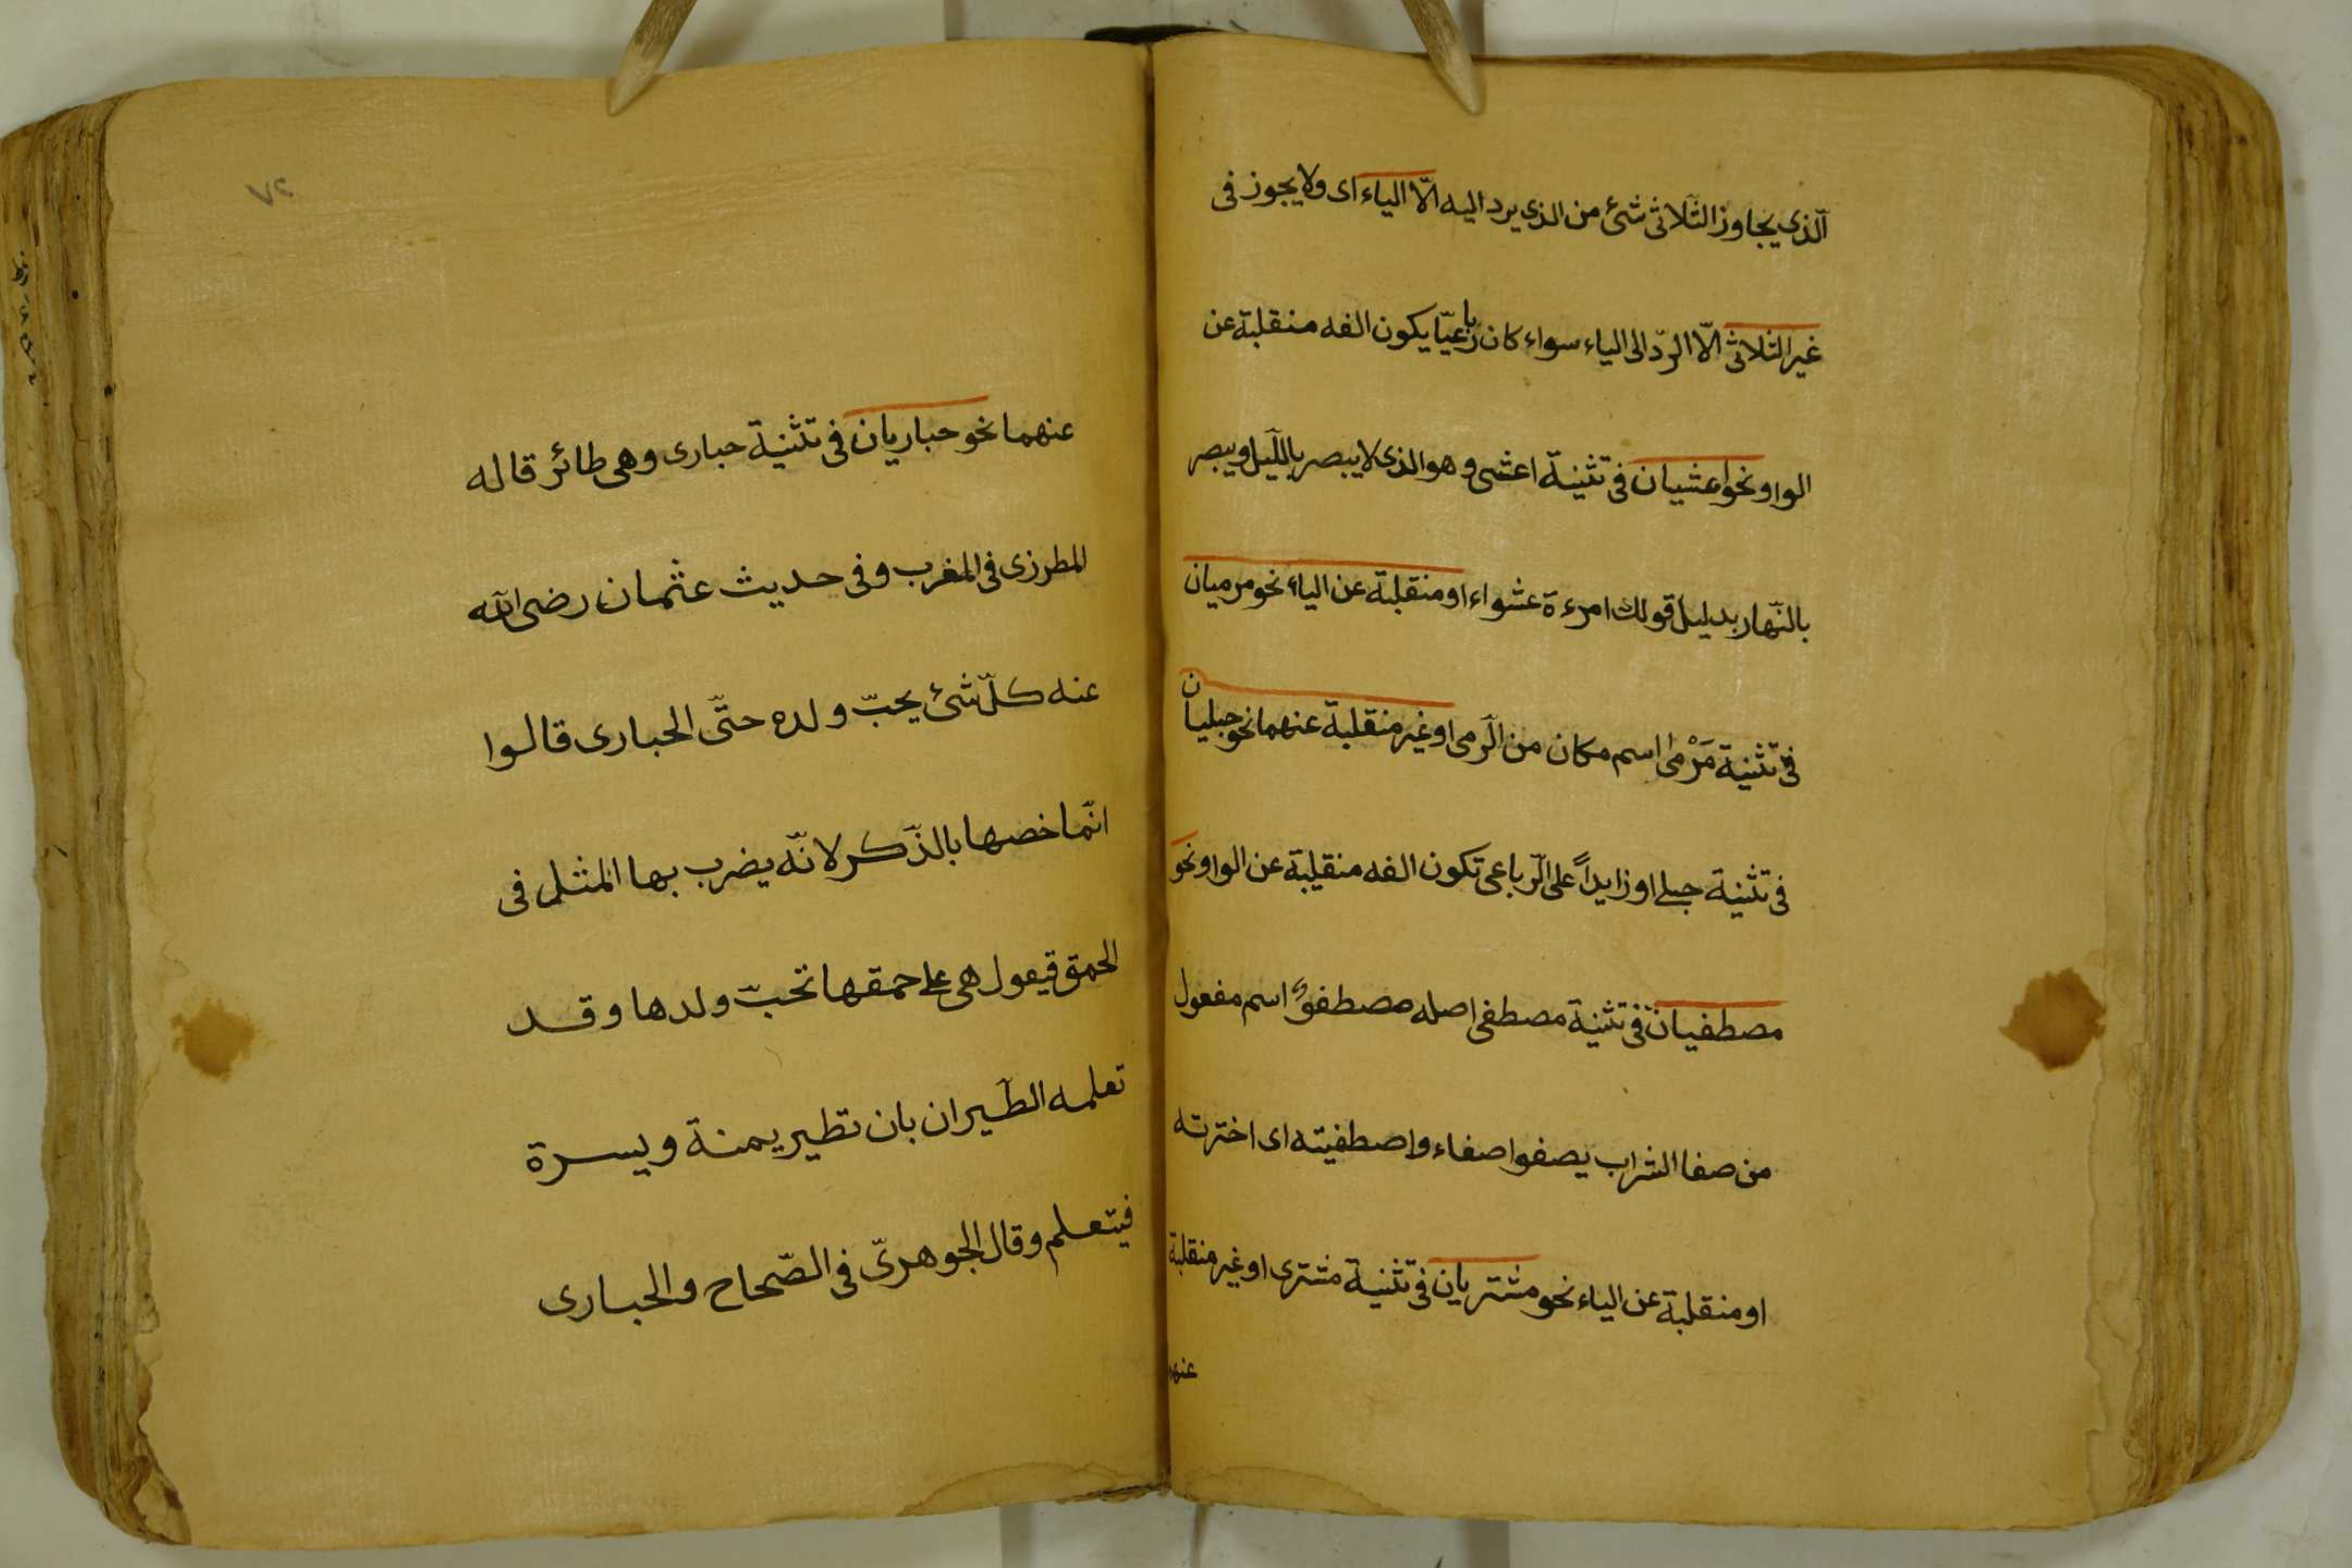 الّذى يجاوز الثّلاثى شئ من الذى يرد اليه الّا الياء اى ولا يجوز فى
غير الثلاثى الّا الردّ الى الياء سواء كان رباعيّا يكون الفه منقلبة عن
الواو نحو اعشيان فى تثنية اعشى وهو الذى لا يبصر بالليل ويبصر
بالنّهار بدليل قولك امرءة عشواء او منقلبة عن الياء نحو مرميان
فى تثنية مَرْمى اسم مكان من الرّمى او غير منقلبة عنهما نحو حبليان
فى تثنية حبلى او زايداً على الرّباعى تكون الفه منقلبة عن الواو نحو
مصطفيان فى تثنية مصطفى اصله مصطفوٌ اسم مفعول
من صفا الشراب يصفوا صفاء واصطفيته اى اخترته
او منقلبة عن الياء نحو مشتريان فى تثنية مشترى او غير منقلبة
عنهما
٧٢
عنهما نحو حباريان فى تثنية حبارى وهى طائر قاله
المطرزى فى المغرب وفى حديث عثمان رضى الله
عنه كلّ شئ يحبّ ولده حتّى الحبارى قالوا
انّما خصها بالذّكر لانّه يضرب بها المثل فى
الحمق فيقول هى على حمقها تحبّ ولدها وقد
تعلمه الطّيران بان تطير يمنة ويسرة
فيتعلم وقال الجوهرىّ فى الصّحاح والحبارى